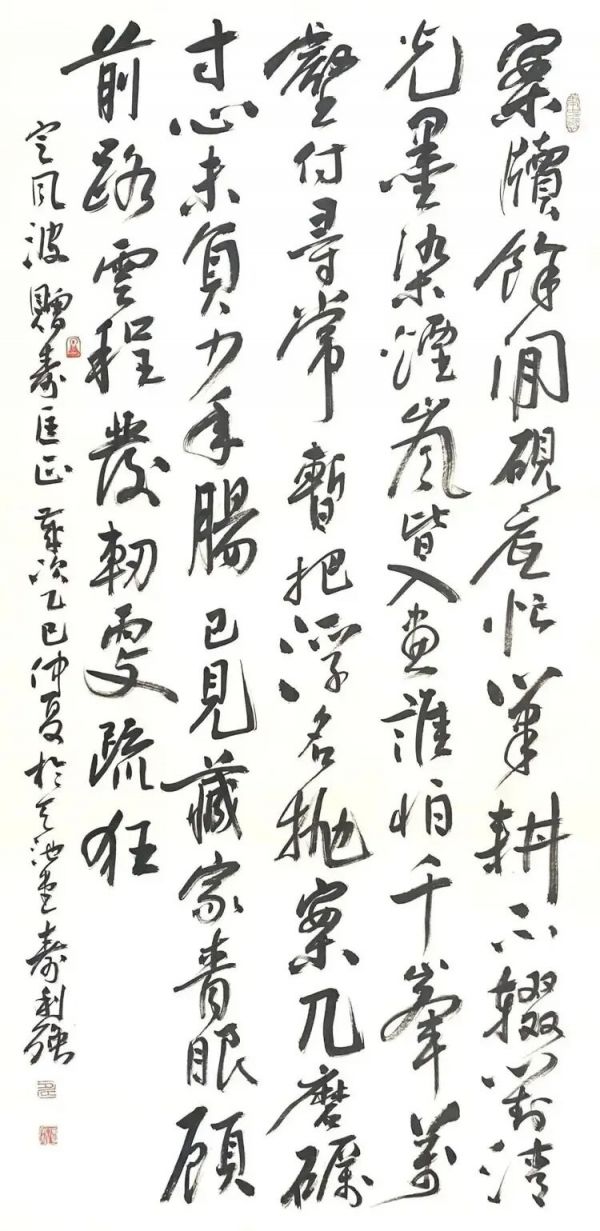 案牘餘閒硯底忙筆耕不輟對清
光墨染煙嵐皆入畫誰怕千峯萬
壑付尋常暫把浮名拋案几磨礪
寸心未負少年腸已見藏家青眼顧
前路雲程發軔更疏狂
定風波贈壽匡正歲次乙巳仲夏於天池壽利強